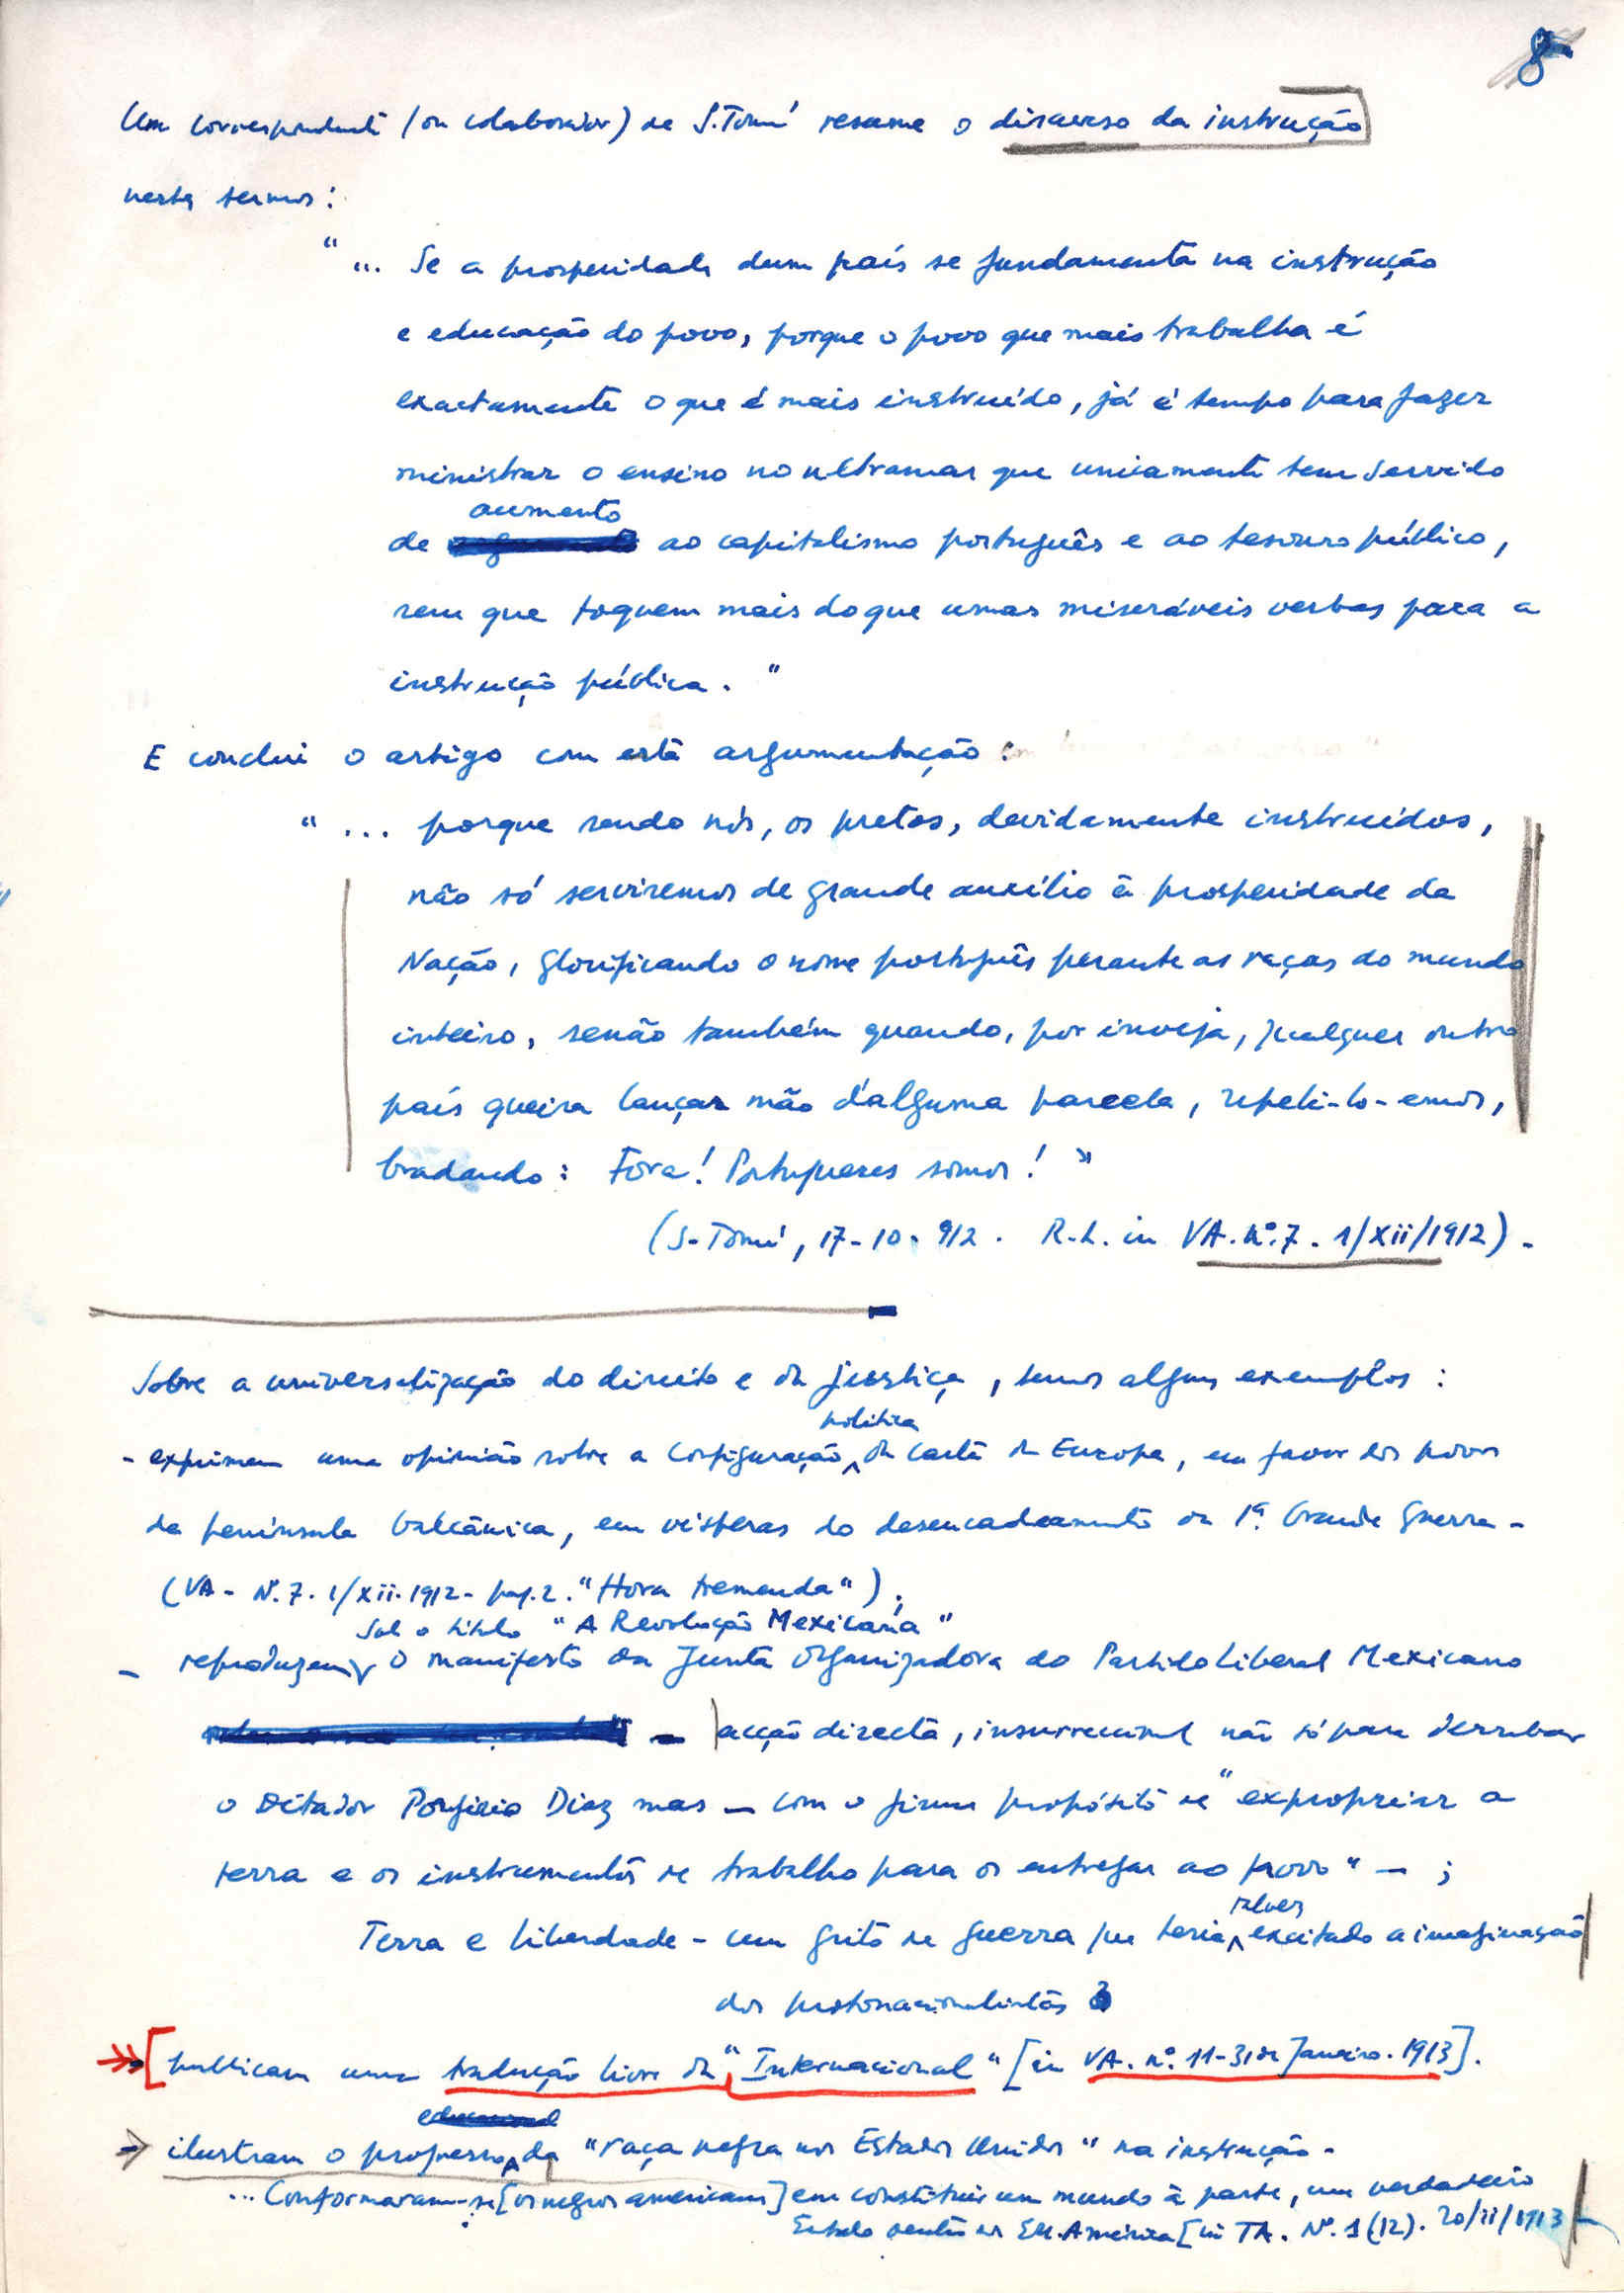 8
Um correspondente (ou colaborador) de S. Tomé resume o discurso da instrução
nestes termos:
"... Se a prosperidade dum país se fundamenta na instrução
e educação do povo, porque o povo que mais trabalha é
exactamente o que é mais instruído, já é tempo para fazer
ministrar o ensino no ultramar que unicamente tem servido
aumento
de ao capitalismo português e ao tesouro público,
sem que toquem mais do que umas miseráveis verbas para a
instrução pública."
E conclui o artigo com esta argumentação:
"... porque sendo nós, os pretos, devidamente instruídos,
não só serviremos de grande auxílio à prosperidade da
Nação, glorificando o nome português perante as raças do mundo
inteiro, senão também quando, por inveja, qualquer outro
país queira lançar mão d'alguma parcela, repeli-lo-emos,
bradando: Fora! Portugueses somos!"
(S. Tomé, 17-10-912. R.L. in VA. nº. 7. 1/XII/1912).
Sobre a universalização do direito e da justiça, temos alguns exemplos:
política
- exprimem uma opinião sobre a configuração da carta da Europa, em favor dos povos
da península balcânica, em vésperas do desencadeamento da 1ª. Grande Guerra -
(VA - Nº. 7. 1/XII.1912 - pag. 2. "Hora tremenda");
Sob o título "A Revolução Mexicana"
- reproduzem o manifesto da Junta Organizadora do Partido Liberal Mexicano
— acção directa, insurreccional não só para derrubar
o ditador Porfirio Diaz mas — com o firme propósito de "expropriar a
terra e os instrumentos de trabalho para os entregar ao povo" — ;
talvez
Terra e liberdade - um grito de guerra que teria excitado a imaginação
dos protonacionalistas
[publicam uma tradução livre da "Internacional" [in VA. nº. 11-31 de Janeiro. 1913].
educacional
→ ilustram o progresso da "raça negra nos Estados Unidos" na instrução.
... Conformaram-se [os negros americanos] em constituir um mundo à parte, um verdadeiro
Estado dentro da América [in TA. Nº. 1 (12). 20/II/1913